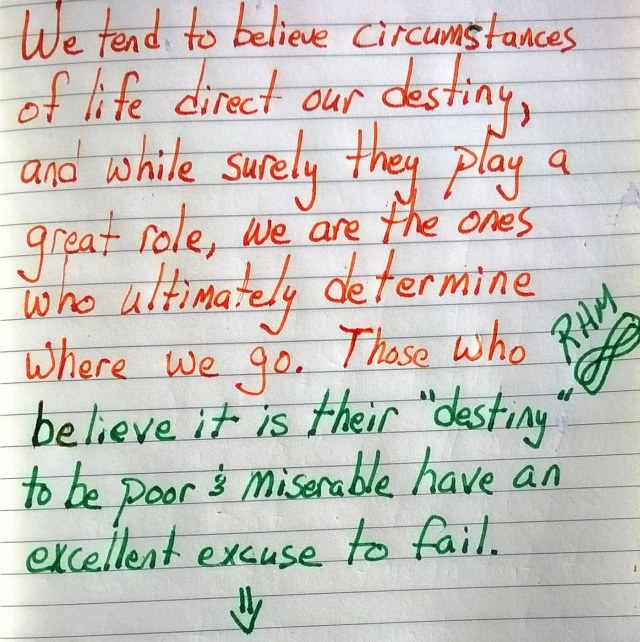 We tend to believe circumstances
of life direct our destiny,
and while surely they play a
great role, we are the ones
who ultimately determine
where we go. Those who
RHM
believe it is their "destiny"
to be poor & miserable have an
excellent excuse to fail.